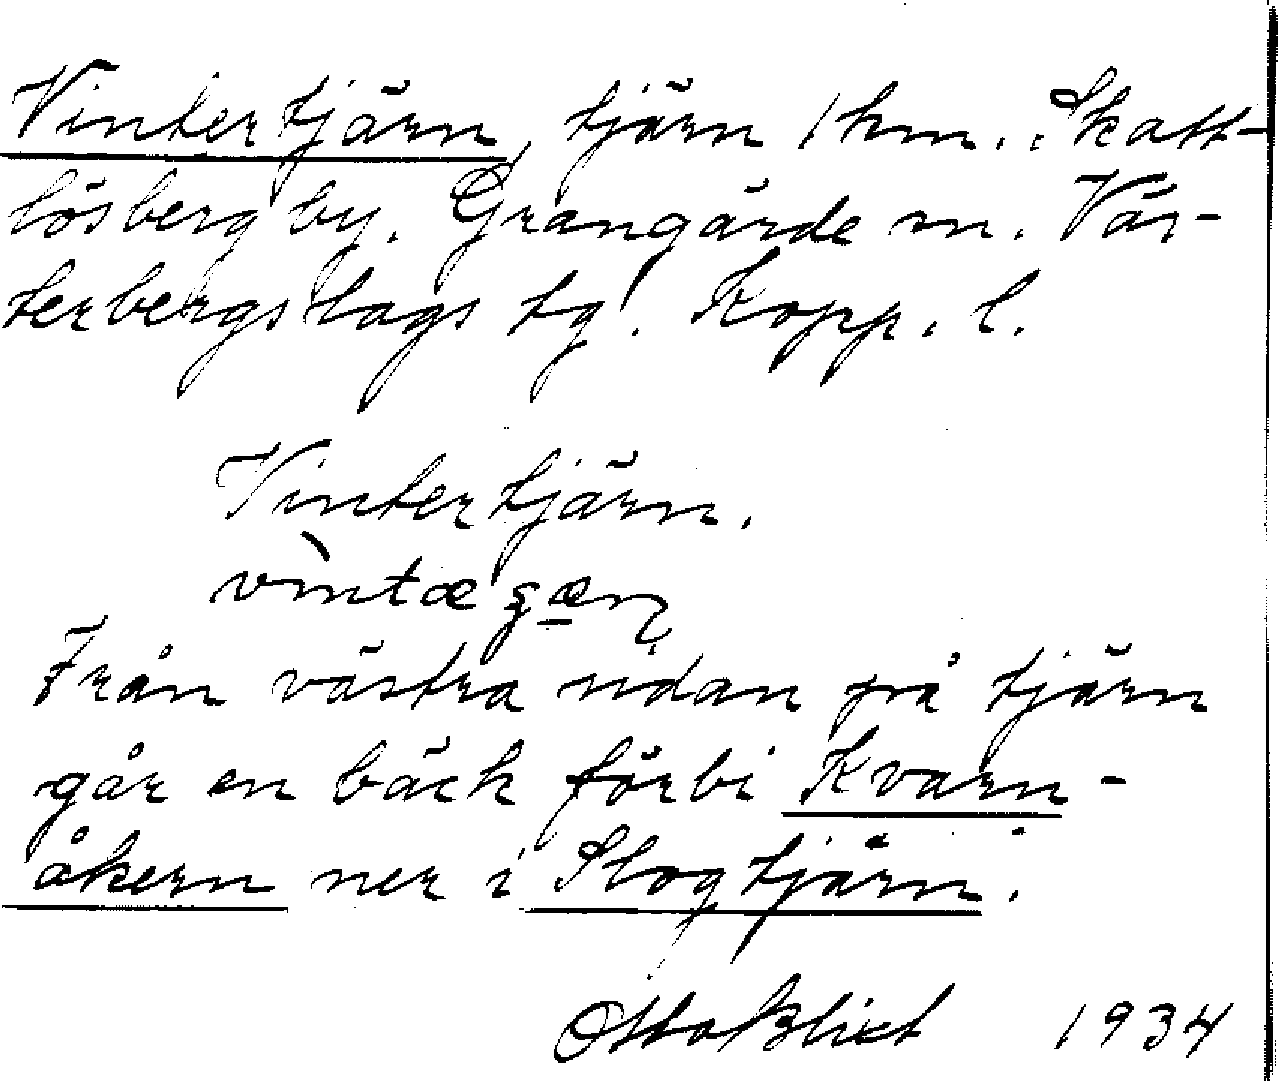 Vintertjärn, tjärn 1 km. . Skatt-
lösberg by. Grangärde sn. Väs-
terbergslags tg. Kopp. l.
Vintertjärn.
Från västra sidan på tjärn
går en bäck förbi Kvarn-
åkern ner i Slogtjärn.
Otto Blixt 1934